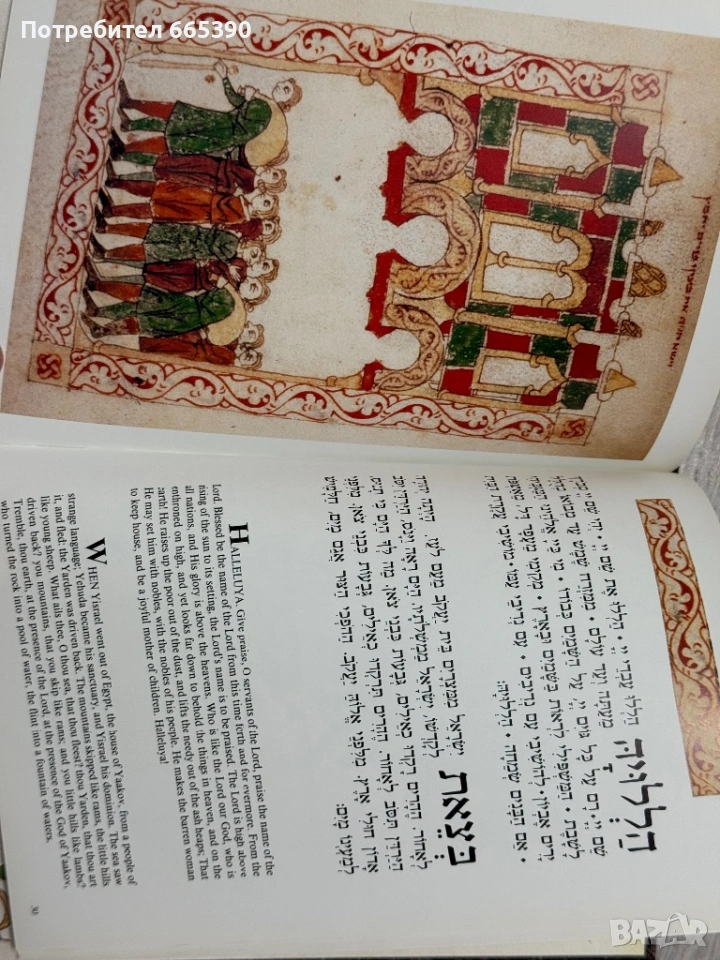 Потребител 665390
הַלְלוּיָהּ הַלְלוּ עַבְדֵי יְיָ • הַלְלוּ אֶת שֵׁם יְיָ • יְהִי שֵׁם יְיָ
מֵעַתָּה וְעַד עוֹלָם • מִמִּזְרַח שֶׁמֶשׁ עַד מְבוֹאוֹ
שֵׁם יְיָ • רָם עַל כָּל גּוֹיִם יְיָ • עַל הַשָּׁמַיִם כְּבוֹדוֹ • מִי כַּיְיָ אֱלֹהֵינוּ הַמַּגְבִּיהִי
לָשָׁבֶת • הַמַּשְׁפִּילִי לִרְאוֹת בַּשָּׁמַיִם וּבָאָרֶץ • מְקִימִי מֵעָפָר דָּל מֵאַשְׁפֹּת
יָרִים אֶבְיוֹן • לְהוֹשִׁיבִי עִם נְדִיבִים • עִם נְדִיבֵי עַמּוֹ • מוֹשִׁיבִי עֲקֶרֶת הַבַּיִת
אֵם הַבָּנִים שְׂמֵחָה • הַלְלוּיָהּ:
בְּצֵאת יִשְׂרָאֵל מִמִּצְרָיִם בֵּית יַעֲקֹב מֵעַם לֹעֵז. הָיְתָה יְהוּדָה
לְקָדְשׁוֹ, יִשְׂרָאֵל מַמְשְׁלוֹתָיו. הַיָּם רָאָה וַיָּנֹס, הַיַּרְדֵּן יִסֹּב
לְאָחוֹר. הֶהָרִים רָקְדוּ כְאֵילִים, גְּבָעוֹת כִּבְנֵי צֹאן. מַה לְּךָ הַיָּם כִּי תָנוּס
הַיַּרְדֵּן תִּסֹּב לְאָחוֹר. הֶהָרִים תִּרְקְדוּ כְאֵילִים, גְּבָעוֹת כִּבְנֵי צֹאן. מִלִּפְנֵי
אָדוֹן חוּלִי אָרֶץ, מִלִּפְנֵי אֱלוֹהַּ יַעֲקֹב. הַהֹפְכִי הַצּוּר אֲגַם מָיִם, חַלָּמִישׁ
לְמַעְיְנוֹ מָיִם:
HALLELUYA Give praise, O servants of the Lord, praise the name of the
Lord. Blessed be the name of the Lord from this time forth and for evermore. From the
rising of the sun to its setting, the Lord's name is to be praised. The Lord is high above
all nations, and His glory is above the heavens. Who is like the Lord our God, who is
enthroned on high, and yet looks far down to behold the things in heaven, and on the
earth! He raises up the poor out of the dust, and lifts the needy out of the ash heaps; That
He may set him with nobles, with the nobles of his people. He makes the barren woman
to keep house, and be a joyful mother of children. Halleluya!
WHEN Yisrael went out of Egypt, the house of Yaakov, from a people of
strange language; Yehuda became his sanctuary, and Yisrael his dominion. The sea saw
it, and fled: the Yarden was driven back. The mountains skipped like rams, the little hills
like young sheep. What ails thee, O thou sea, that thou fleest? thou Yarden, that thou art
driven back? you mountains, that you skip like rams; and you little hills like lambs?
Tremble, thou earth, at the presence of the Lord, at the presence of the God of Yaakov,
who turned the rock into a pool of water, the flint into a fountain of waters.
30
BAZAR